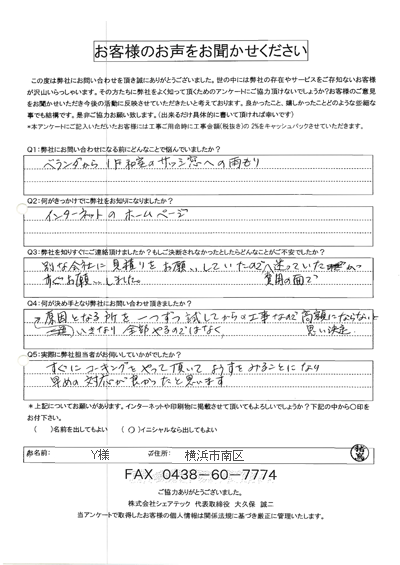 お客様のお声をお聞かせください
この度は弊社にお問い合わせを頂き誠にありがとうございました。世の中には弊社の存在やサービスをご存知ないお客様
が沢山いらっしゃいます。その方たちに弊社をよく知って頂くためのアンケートにご協力頂けないでしょうか?お客様のご意見
をお聞かせいただき今後の活動に反映させていただきたいと考えております。良かったこと、嬉しかったことどのような些細な
事でも結構です。是非ご協力お願い致します。(出来るだけ具体的に書いて頂ければ幸いです)
*本アンケートにご記入いただいたお客様には工事ご用命時に工事金額(税抜き)の2%をキャッシュバックさせていただきます。
Q1:弊社にお問い合わせになる前にどんなことで悩んでいましたか?
ベランダから1F和室のサッシ窓への雨もり
Q2:何がきっかけでに弊社をお知りになりましたか?
インターネットのホームページ
Q3:弊社を知りすぐにご連絡頂けましたか?もしご決断されなかったとしたらどんなことがご不安でしたか?
別な会社に見積りをお願いしていたので迷っていた
費用の面で
すぐお願いしました。
Q4:何が決め手となり弊社にお問い合わせ頂きましたか?
原因となる所を一つずつ試してからの工事なので高額にならないと
いきなり全部やるのではなく、思い決定。
Q5:実際に弊社担当者がお伺いしていかがでしたか?
すぐにコーキングをやって頂いてようすをみることになり
早めの対応が良かったと思います
*上記についてお願いがあります。インターネットや印刷物に掲載させて頂いてもよろしいでしょうか?下記の中から〇印を
お付け下さい。
( )名前を出してもよい (〇)イニシャルなら出してもよい
お名前: Y様 ご住所: 横浜市南区
FAX 0438-60-7774
ご協力ありがとうございました。
株式会社シェアテック 代表取締役 大久保 誠二
当アンケートで取得したお客様の個人情報は関係法規に基づき厳正に管理いたします。